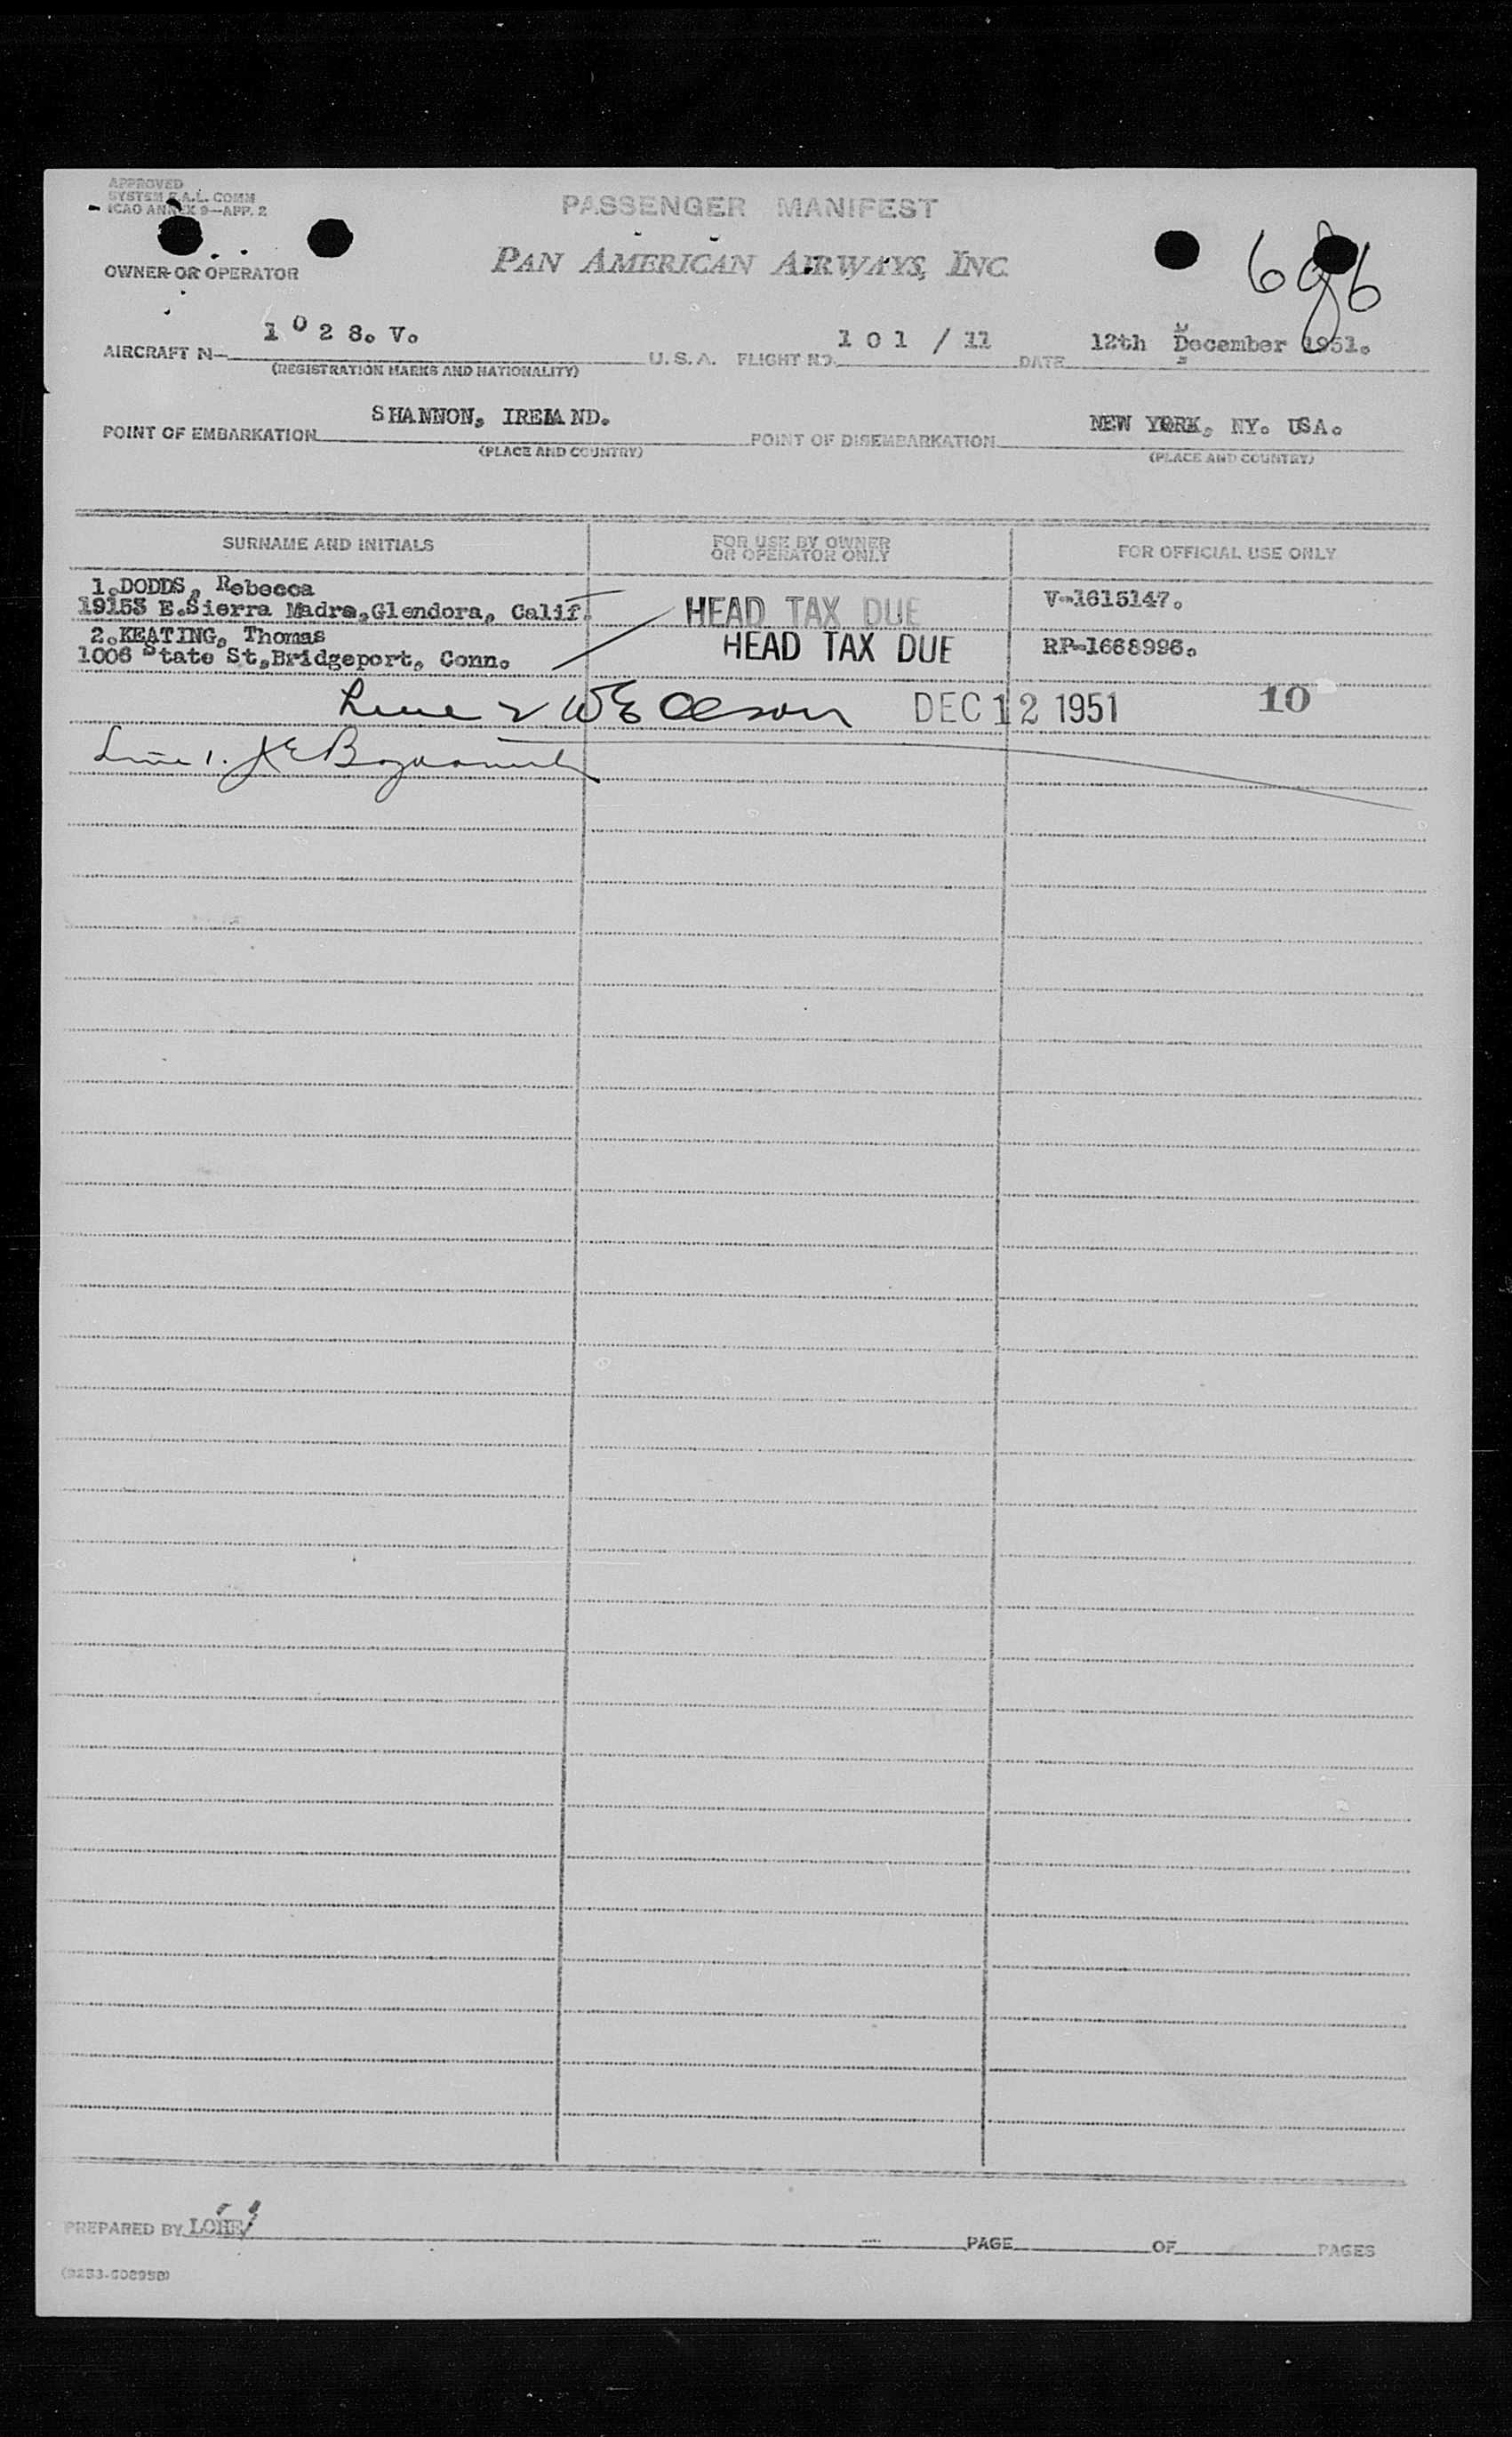 APPROVED
SYSTEM F.A.L. COMM
ICAO ANNEX 9—APP. 2
PASSENGER MANIFEST
OWNER OR OPERATOR
PAN AMERICAN AIRWAYS, INC.
686
AIRCRAFT N— 1 0 2 8. V. U. S. A. FLIGHT NO. 1 0 1 / 11 DATE 12th December 1951.
(REGISTRATION MARKS AND NATIONALITY)
POINT OF EMBARKATION SHANNON, IRELAND. POINT OF DISEMBARKATION NEW YORK, NY. USA.
(PLACE AND COUNTRY) (PLACE AND COUNTRY)
SURNAME AND INITIALS FOR USE BY OWNER OR OPERATOR ONLY FOR OFFICIAL USE ONLY
1.DODDS, Rebecca
19153 E.Sierra Madre,Glendora, Calif. HEAD TAX DUE V-1615147.
2.KEATING, Thomas
1006 State St,Bridgeport, Conn. HEAD TAX DUE RP-1668996.
Line 2 WE Olson DEC 12 1951 10
Line 1.
PREPARED BY PAGE OF PAGES